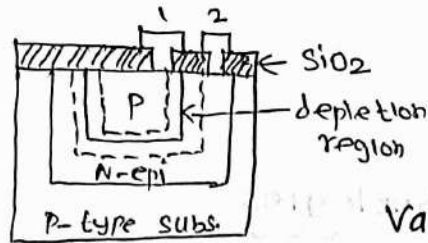 1 2
SiO2
P
depletion
region
N-epi
P-type subs.
Va